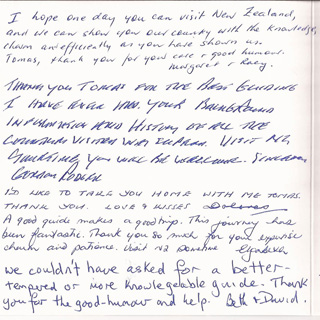 I hope one day you can visit New Zealand,
and we can show you our country with the knowledge,
charm and efficiently as you have shown us.
Tomas, thank you for your care & good humour.
Margaret & 
THANK YOU TOMAS FOR THE BEST GUIDING
I HAVE EVER HAD. YOUR BACKGROUND
INFORMATION AND HISTORY OF ALL THE
COUNTRIES VISITED WAS VISIT ME
YOU WILL BE WELCOME. SINCERELY
I'D LIKE TO TAKE YOU HOME WITH ME TOMAS.
THANK YOU. LOVE & KISSES
A good guide makes a good trip. This journey has
been fantastic. Thank you so much for your expertise
charm and patience. Visit NZ
we couldn't have asked for a better-
tempered or more knowlegable guide. Thank
you for the good-humour and help. Beth & David.